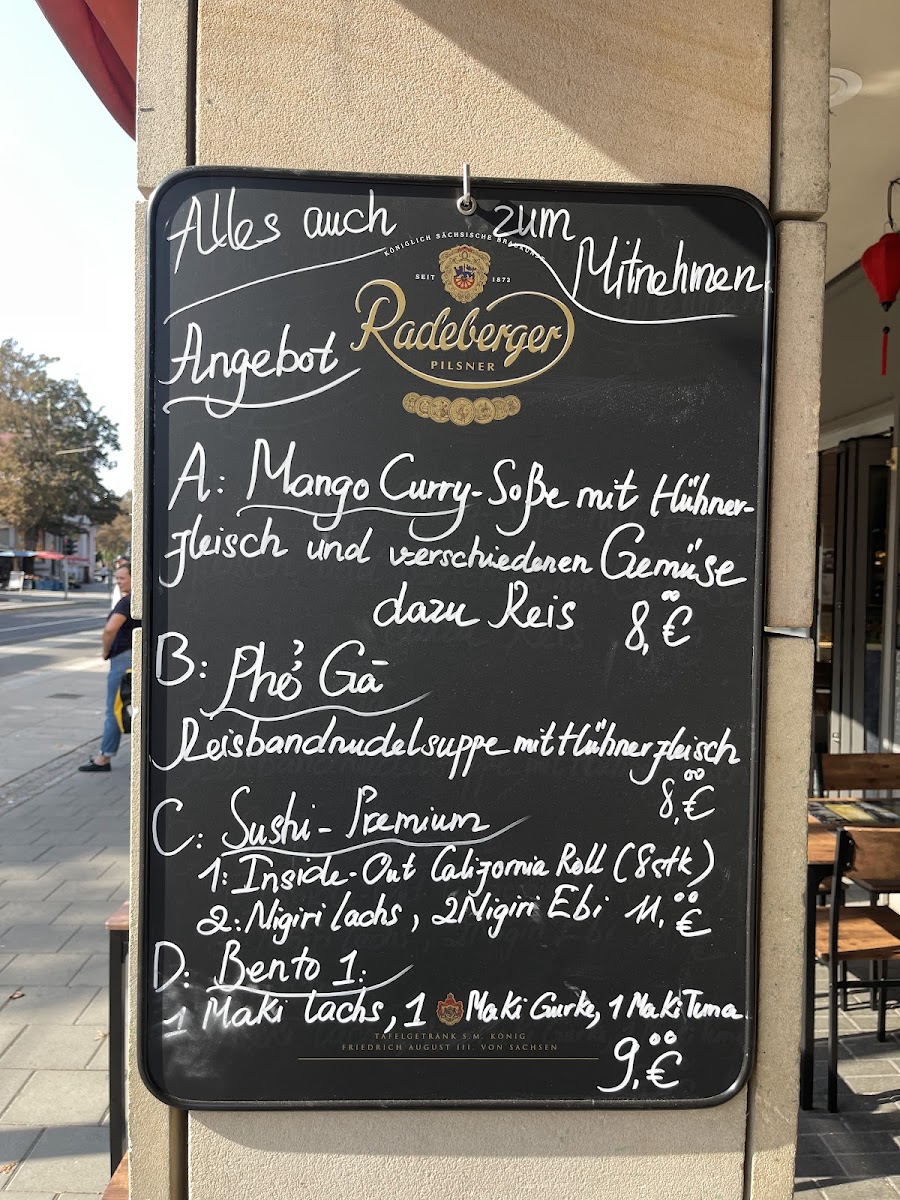 Alles auch zum
Mitnehmen
KÖNIGLICH SÄCHSISCHE BRAUKUNST
SEIT 1872
Radeberger
PILSNER
Angebot
A: Mango Curry-Soße mit Hühner-
fleisch und verschiedenen Gemüse
dazu Reis 8,00 €
B: Phở Gā
Reisbandnudelsuppe mit Hühnerfleisch
8,00 €
C: Sushi-Premium
1: Inside-Out California Roll (8stk)
2: Nigiri Lachs, 2 Nigiri Ebi 11,00 €
D: Bento 1:
1 Maki Lachs, 1 Maki Gurke, 1 Maki Tuna
TAFELGETRÄNK S.M. KÖNIG
FRIEDRICH AUGUST III. VON SACHSEN
9,00 €